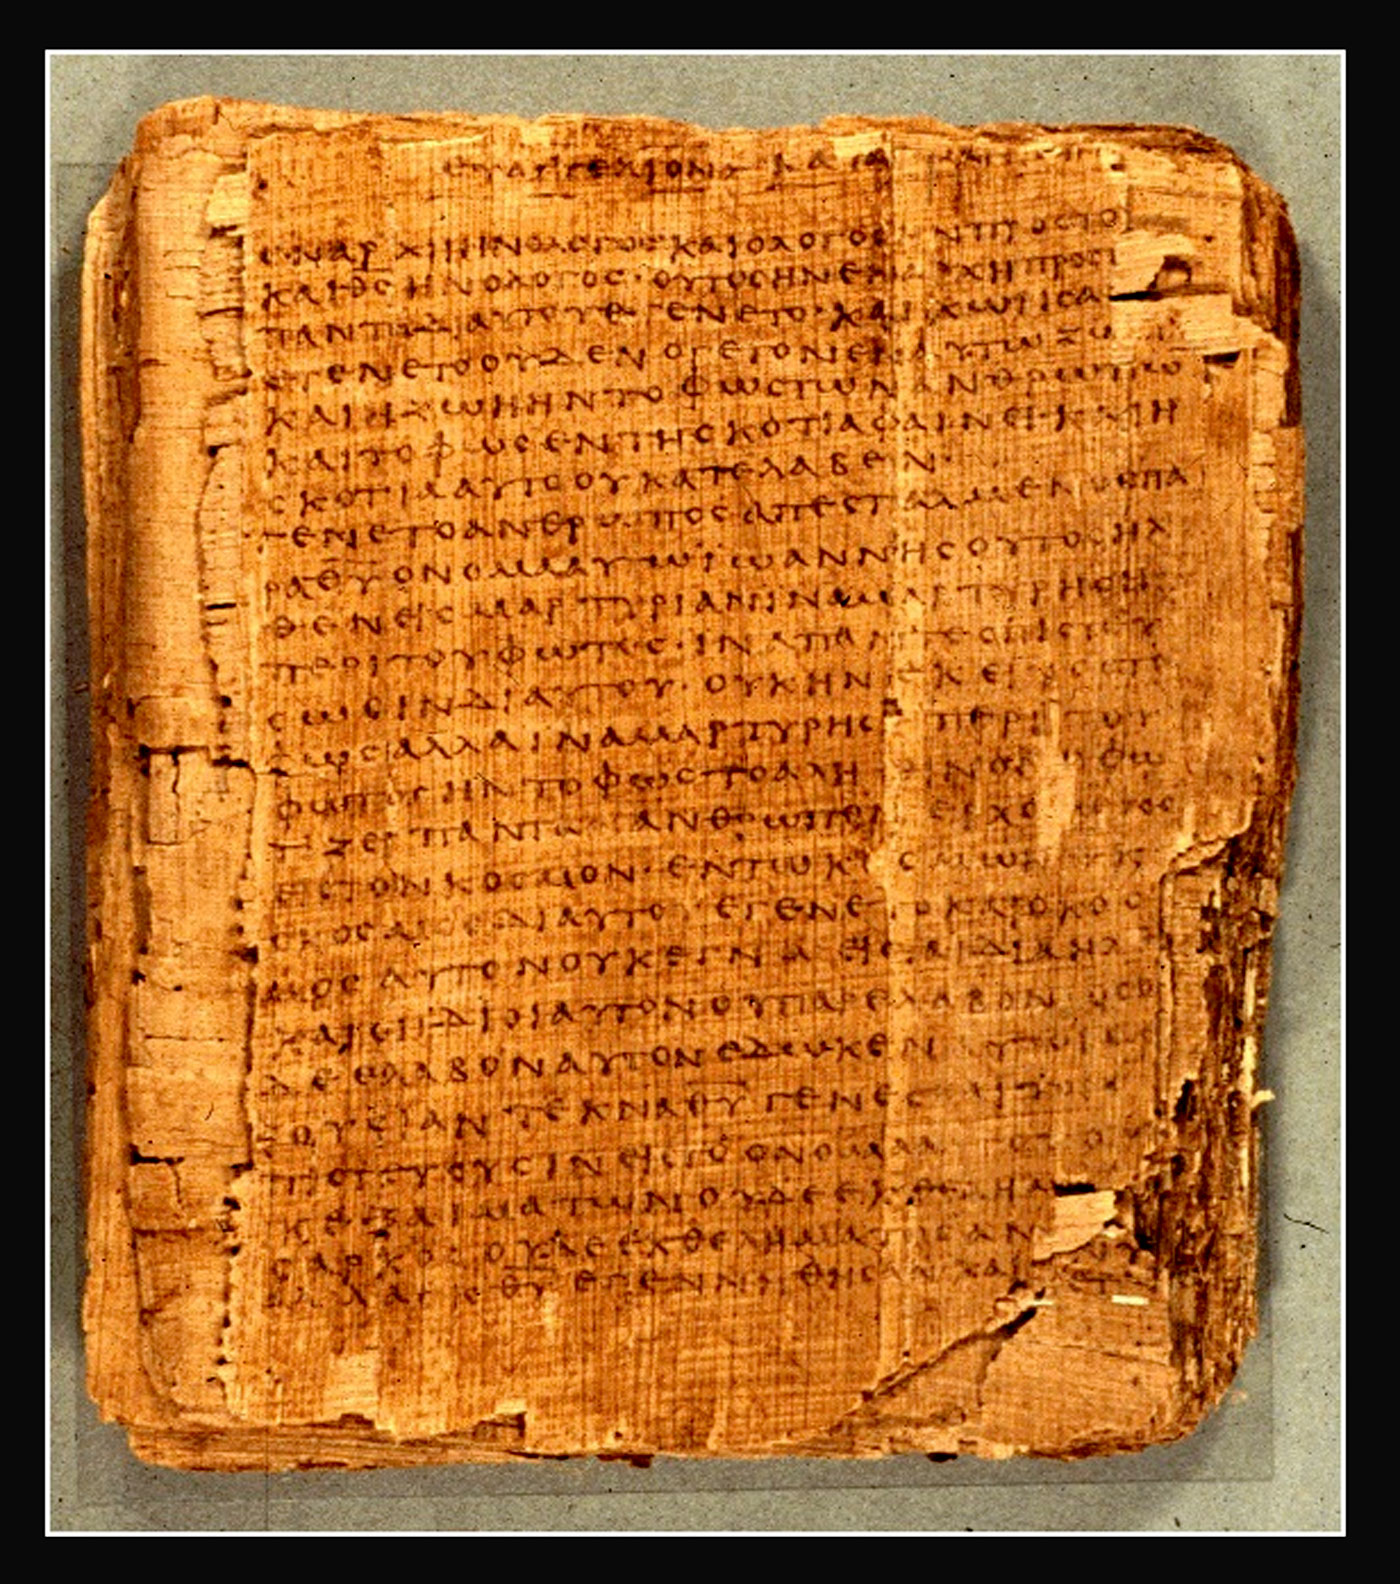 ЄΥΑΓΓЄΛΙΟΝ ΚΑΤΑ
ЄΝ ΑΡΧΗ ΗΝ Ο ΛΟΓΟϹ ΚΑΙ Ο ΛΟΓΟϹ ΠΡΟϹ ΤΟ
ΚΑΙ Θ̅Ϲ̅ ΗΝ Ο ΛΟΓΟϹ · ΟΥΤΟϹ ΗΝ ЄΝ ΑΡΧΗ ΠΡΟϹ
ΠΑΝΤΑ ΔΙ ΑΥΤΟΥ ЄΓЄΝЄΤΟ · ΚΑΙ ΧΩΡΙϹ Α
ЄΓЄΝЄΤΟ ΟΥΔЄΝ Ο ΓЄΓΟΝЄΝ ЄΝ ΑΥΤΩ ΖΩ
ΚΑΙ Η ΖΩΗ ΗΝ ΤΟ ΦΩϹ ΤΩΝ ΑΝΘΡΩΠΩ
ΚΑΙ ΤΟ ΦΩϹ ЄΝ ΤΗ ϹΚΟΤΙΑ ΦΑΙΝЄΙ · ΚΑΙ Η
ϹΚΟΤΙΑ ΑΥΤΟ ΟΥ ΚΑΤЄΛΑΒЄΝ ·
ЄΓЄΝЄΤΟ ΑΝΘΡΩΠΟϹ ΑΠЄϹΤΑΛΜЄΝΟϹ ΠΑ
ΡΑ Θ̅Υ̅ ΟΝΟΜΑ ΑΥΤΩ ΪΩΑΝΝΗϹ ΟΥΤΟϹ ΗΛ
ΘЄΝ ЄΙϹ ΜΑΡΤΥΡΙΑΝ ΙΝΑ ΜΑΡΤΥΡΗϹΗ
ΠЄΡΙ ΤΟΥ ΦΩΤΟϹ · ΙΝΑ ΠΑΝΤЄϹ ΠΙϹΤЄΥ
ϹΩϹΙΝ ΔΙ ΑΥΤΟΥ · ΟΥΚ ΗΝ ЄΚЄΙΝΟϹ ΤΟ
ΦΩϹ ΑΛΛΑ ΙΝΑ ΜΑΡΤΥΡΗϹΗ ΠЄΡΙ ΤΟΥ
ΦΩΤΟϹ ΗΝ ΤΟ ΦΩϹ ΤΟ ΑΛΗΘΙΝΟΝ Ο ΦΩ
ΤΙΖЄΙ ΠΑΝΤΑ ΑΝΘΡΩΠΟΝ ЄΡΧΟΜЄΝΟΝ
ЄΙϹ ΤΟΝ ΚΟϹΜΟΝ · ЄΝ ΤΩ ΚΟϹΜΩ ΗΝ
ΚΟϹΜΟϹ ΔΙ ΑΥΤΟΥ ЄΓЄΝЄΤΟ ΚΑΙ Ο ΚΟϹ
ΜΟϹ ΑΥΤΟΝ ΟΥΚ ЄΓΝΩ ЄΙϹ ΤΑ ΙΔΙΑ ΗΛ
ΚΑΙ ΟΙ ΙΔΙΟΙ ΑΥΤΟΝ ΟΥ ΠΑΡЄΛΑΒΟΝ ΟϹΟΙ
ΔЄ ЄΛΑΒΟΝ ΑΥΤΟΝ ЄΔΩΚЄΝ ΑΥΤΟΙϹ
ΟΥϹΙΑΝ ΤЄΚΝΑ Θ̅Υ̅ ΓЄΝЄϹΘΑΙ ΤΟΙϹ
ΠΙϹΤЄΥΟΥϹΙΝ ЄΙϹ ΤΟ ΟΝΟΜΑ
Κ ЄΞ ΑΙΜΑΤΩΝ ΟΥΔЄ ЄΚ ΘЄΛΗΜΑ
ϹΑΡΚΟϹ ΟΥΔЄ ЄΚ ΘЄΛΗΜΑΤΟϹ ΑΝ
ΑΛΛΑ ЄΚ Θ̅Υ̅ ЄΓЄΝΝΗΘΗϹΑΝ ΚΑΙ